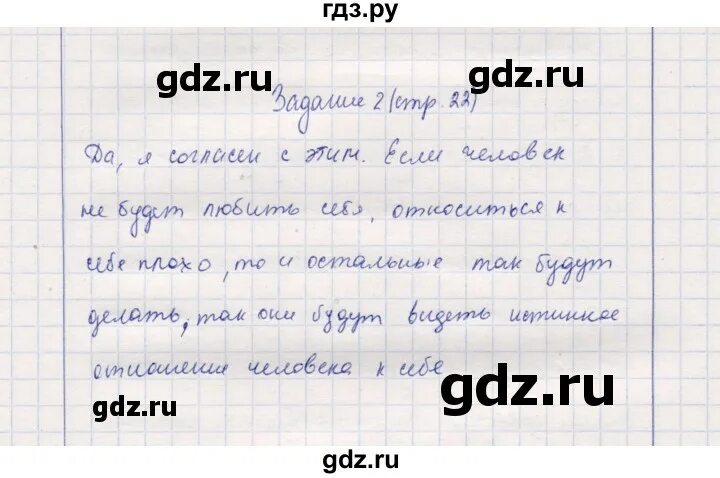 гдз.ру
gdz.ru
gdz.ru
Задание 2 (стр. 22)
Да, я согласен с этим. Если человек
не будет любить себя, относиться к
себе плохо, то и остальные так будут
делать, так они будут видеть истинное
отношение человека к себе
gdz.ru
gdz.ru
gdz.ru